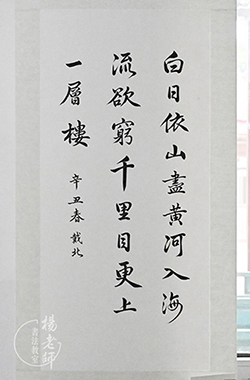 白日依山盡黃河入海
流欲窮千里目更上
一層樓
辛丑春戴北
楊老師
書法教室